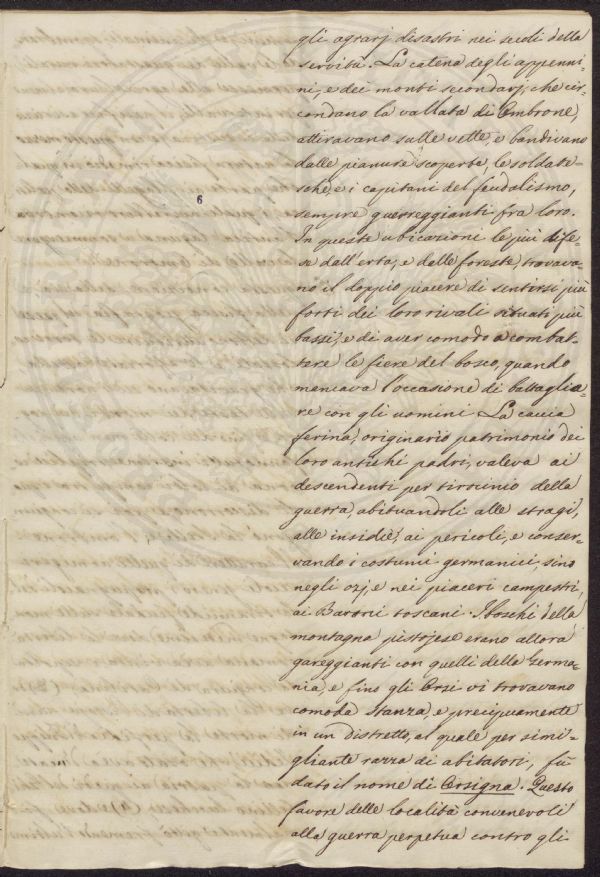 6
gli agrarj disastri nei secoli della
servitù. La catena degli appenni-
ni, e dei monti secondarj, che cir-
condano la vallata di Ombrone,
attiravano sulle vette, e bandivano
dalle pianure scoperte, le soldate-
sche, e i capitani del feudalismo,
sempre guerreggianti fra loro.
In queste ubicazioni le più dife-
se dall'erta, e dalle foreste, trovava-
no il doppio piacere di sentirsi più
forti dei loro rivali situati più
bassi, e di aver comodo a combat-
tere le fiere del bosco, quando
mancava l'occasione di battaglia-
re con gli uomini. La caccia
ferina, originario patrimonio dei
loro antichi padri, valeva ai
descendenti per tirocinio della
guerra, abituandoli alle stragi,
alle insidie, ai pericoli, e conser-
vando i costumi germanici, sino
negli ozj, e nei piaceri campestri,
ai Baroni toscani. I boschi della
montagna pistojese erano allora
gareggianti con quelli della Germa-
nia, e fino gli Orsi vi trovavano
comoda stanza, e precipuamente
in un distretto, al quale per simi-
gliante razza di abitatori, fù
dato il nome di Orsigna. Questo
favore delle località convenevoli
alla guerra perpetua contro gli